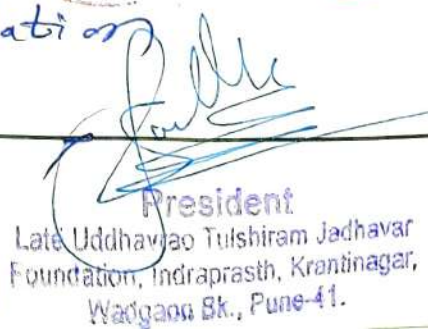 ation
President
Late Uddhavrao Tulshiram Jadhavar
Foundation, Indraprasth, Krantinagar,
Wadgaon Bk., Pune-41.